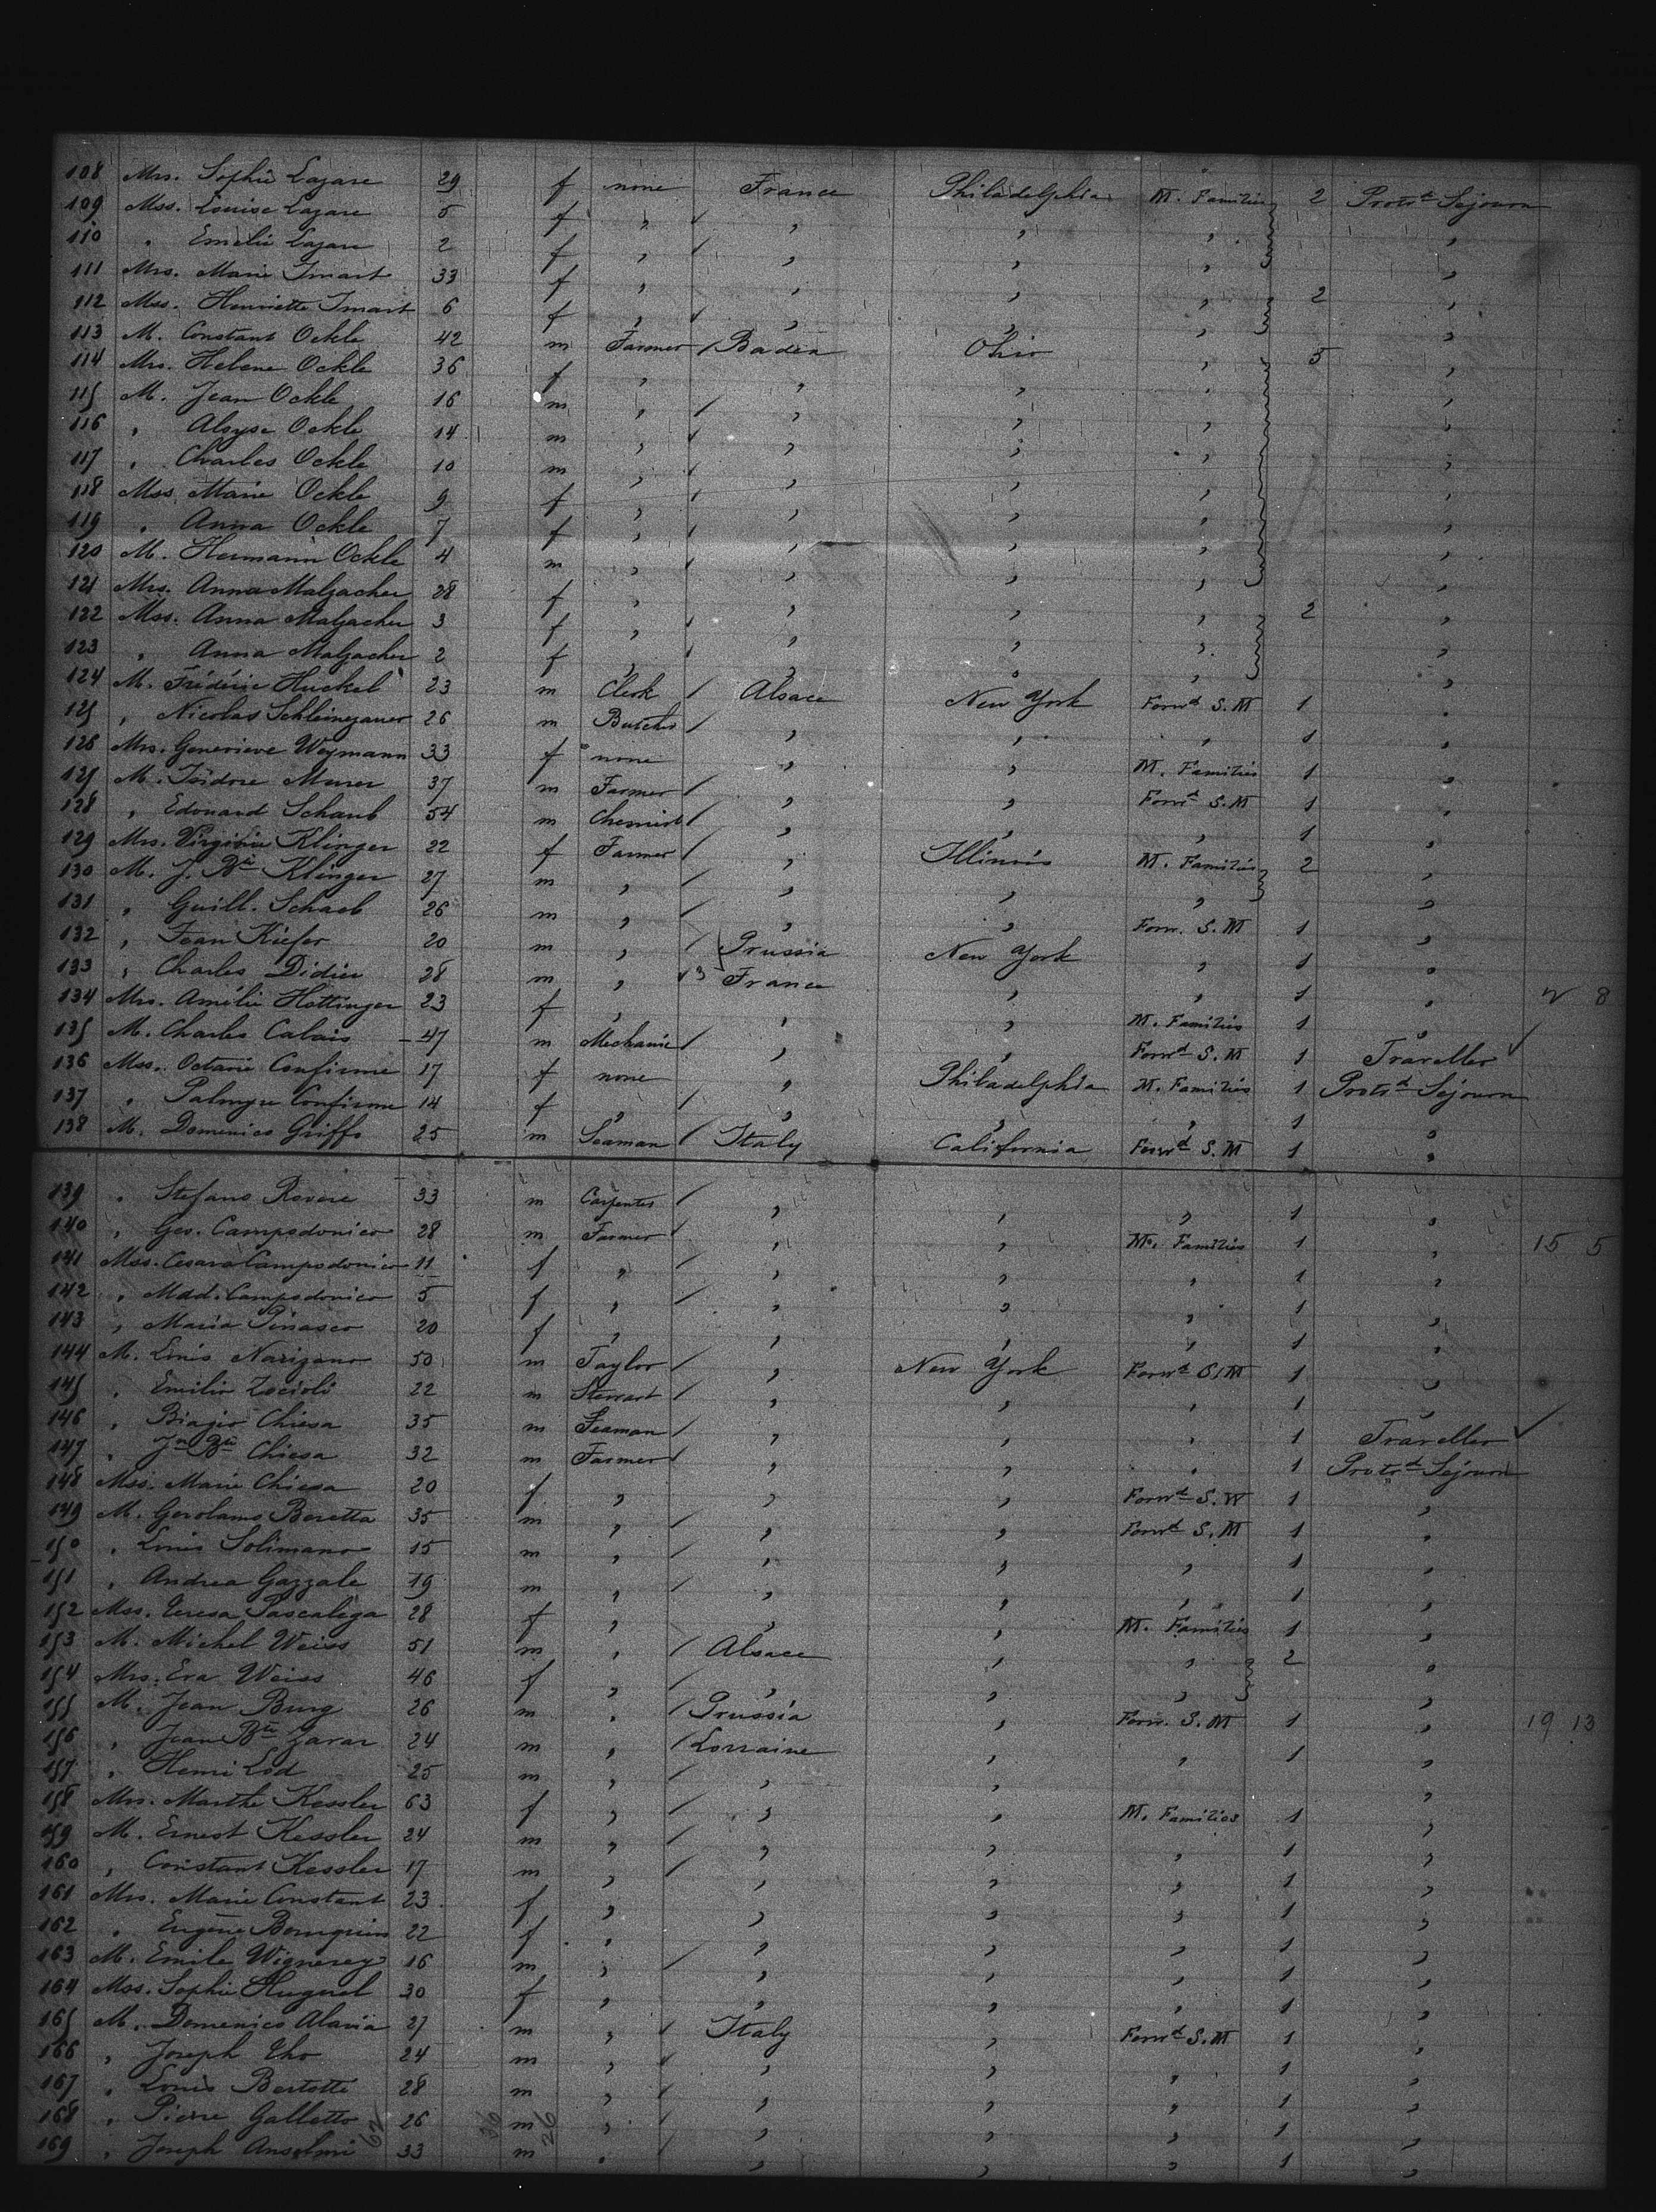 108 Mrs. Sophie Lazare 29 f none France Philadelphia M. Families 2 Protrd Sejourn
109 Mss. Louise Lazare 5 f " " " " "
110 " Emelie Lazare 2 f " " " " "
111 Mrs. Marie Imart 33 f " " " " 2 "
112 Mss. Henriette Imart 6 f " " " " "
113 M. Constant Ockle 42 m Farmer Baden Ohio " 5 "
114 Mrs. Helene Ockle 36 f " " " " "
115 M. Jean Ockle 16 m " " " " "
116 " Aloyse Ockle 14 m " " " " "
117 " Charles Ockle 10 m " " " " "
118 Mss. Marie Ockle 9 f " " " " "
119 " Anna Ockle 7 f " " " " "
120 M. Hermann Ockle 4 m " " " " "
121 Mrs. Anna Malzacher 28 f " " " " 2 "
122 Mss. Anna Malzacher 3 f " " " " "
123 " Anna Malzacher 2 f " " " " "
124 M. Fréderic Huckel 23 m Clerk Alsace New York Forwd S. M 1 "
125 " Nicolas Schleinezauer 26 m Butcher " " " 1 "
126 Mrs. Genevieve Weymann 33 f none " " M. Families 1 "
127 M. Isidore Murer 37 m Farmer " " Forwd S. M 1 "
128 " Edouard Schaub 54 m Chemist " " " 1 "
129 Mrs. Virginie Klinger 22 f Farmer " Illinois M. Families 2 "
130 M. J. Bte Klinger 27 m " " " " "
131 " Guill. Schaeb 26 m " " " Forw. S. M 1 "
132 " Jean Kiefer 20 m " Prussia New York " 1 "
133 " Charles Didier 28 m " 3 France " " 1 "
134 Mrs. Amélie Hottinger 23 f " " " M. Families 1 " 8
135 M. Charles Calais 47 m Mechanic " " Forwd S. M 1 Traveller
136 Mss. Octavie Confirme 17 f none " Philadelphia M. Families 1 Protrd Sejourn
137 " Palmyre Confirme 14 f " " " " 1 "
138 M. Domenico Griffo 25 m Seaman Italy California Forwd S. M 1 "
139 " Stefano Rovere 33 m Carpenter " " " 1 "
140 " Geo. Campodonico 28 m Farmer " " M. Families 1 " 15 5
141 Mss. Cesara Campodonico 11 f " " " " 1 "
142 " Mad. Campodonico 5 f " " " " 1 "
143 " Maria Pinasco 20 f " " " " 1 "
144 M. Linis Narizano 50 m Taylor " New York Forwd S. M 1 "
145 " Emilio Zocioli 22 m Stewart " " " 1 "
146 " Biagio Chiesa 35 m Seaman " " " 1 Traveller
147 " Jn Bte Chiesa 32 m Farmer " " " 1 Protrd Sejourn
148 Mss. Marie Chiesa 20 f " " " Forwd S. W 1 "
149 M. Gerolamo Beretta 35 m " " " Forwd S. M 1 "
150 " Linis Solimano 15 m " " " " 1 "
151 " Andrea Gazzale 19 m " " " " 1 "
152 Mss. Teresa Pascalega 28 f " " " M. Families 1 "
153 M. Michel Weiss 51 m " Alsace " " 2 "
154 Mrs. Eva Weiss 46 f " " " " "
155 M. Jean Burg 26 m " Prussia " Forw. S. M 1 " 19 13
156 " Jean Bte Zavar 24 m " Lorraine " " 1 "
157 " Henri Lod 25 m " " " "
158 Mrs. Marthe Kessler 63 f " " " M. Families 1 "
159 M. Ernest Kessler 24 m " " " " 1 "
160 " Constant Kessler 17 m " " " " 1 "
161 Mrs. Marie Constant 23 f " " " " 1 "
162 " Eugène Bourquin 22 f " " " " 1 "
163 M. Emile Wignerey 16 m " " " " 1 "
164 Mss. Sophie Huguel 30 f " " " " 1 "
165 M. Domenico Alavia 27 m " Italy " Forwd S. M 1 "
166 " Joseph Uho 24 m " " " " 1 "
167 " Louis Bertotti 28 m " " " " 1 "
168 " Pierre Galletto 26 m " " " " 1 "
169 " Joseph Anselmi 33 m " " " " 1 "
62 36 26